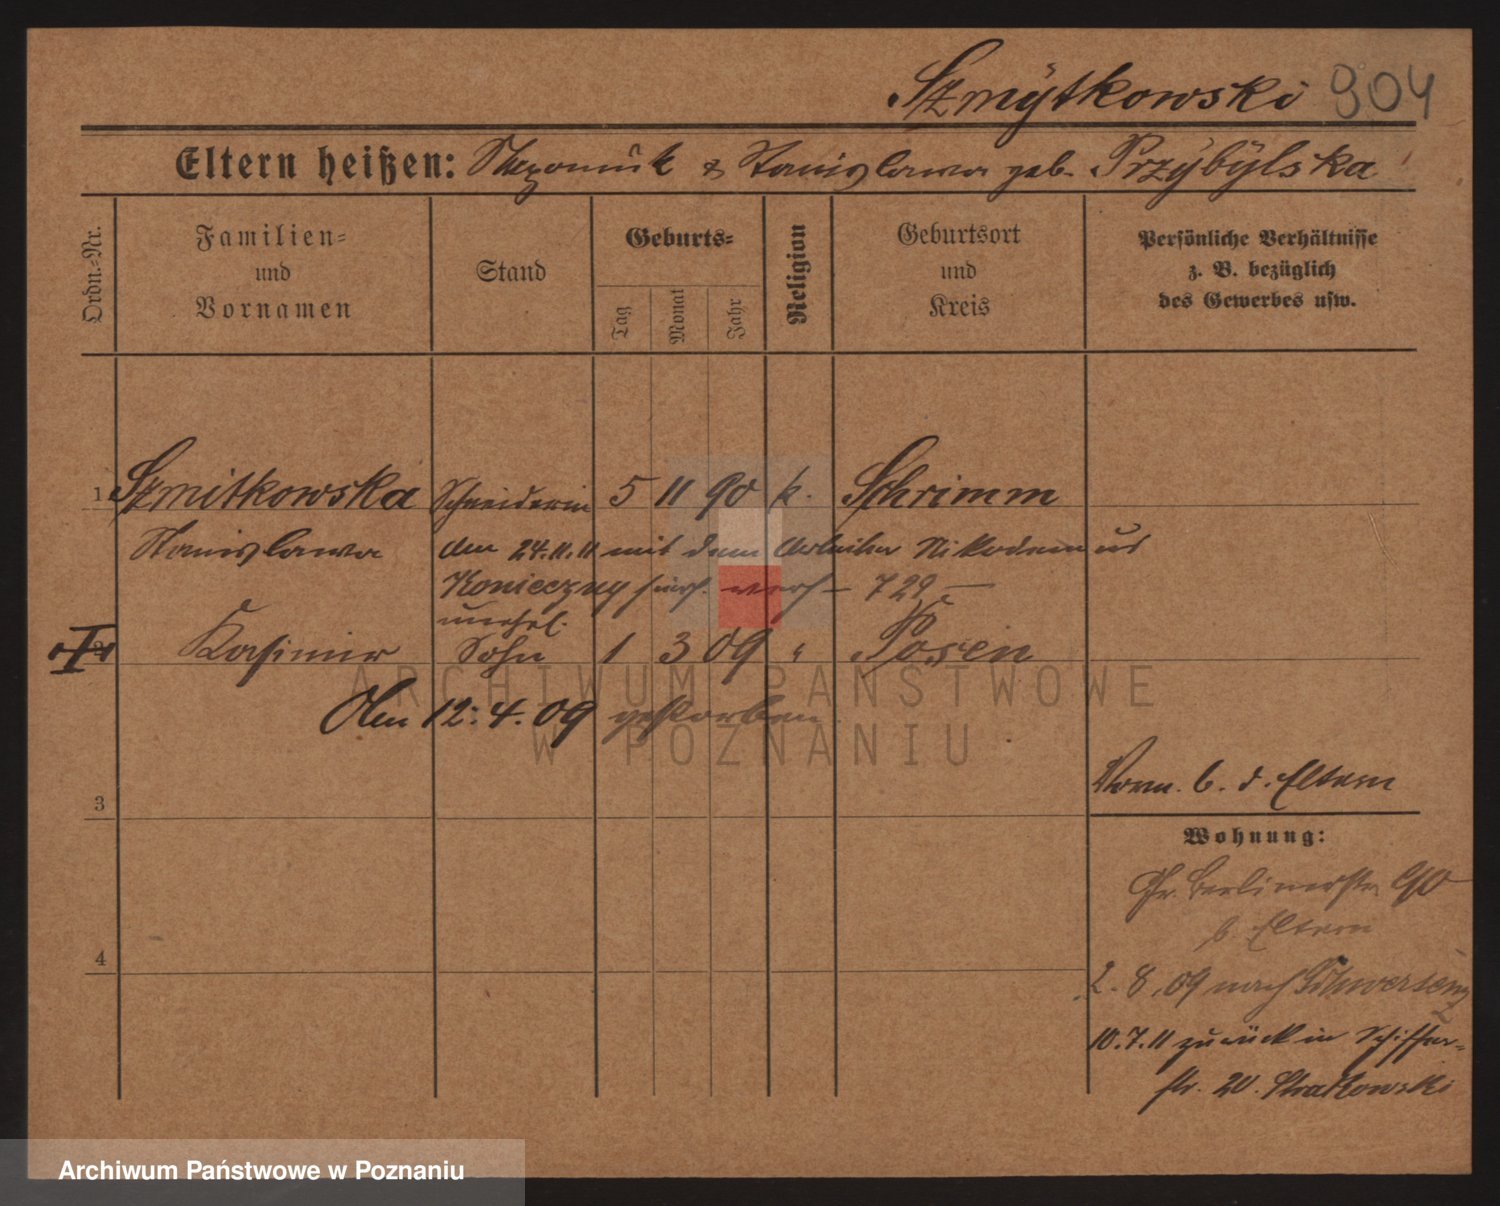 Szmytkowski 904
Eltern heißen: & Stanislawa geb. Przybylska
Ordn.-Nr.
Familien-
und
Vornamen
Stand
Geburts-
Tag
Monat
Jahr
Religion
Geburtsort
und
Kreis
Persönliche Verhältnisse
z. B. bezüglich
des Gewerbes usw.
1 Szmitkowska Schneiderin 5 11 90 k. Schrimm
Stanislawa den 24.11.11 mit dem Arbeiter Nikodemus
Konieczny hier verh. 729
unehel.
2 Kasimir Sohn 1 3 09 " Posen
Den 12.4.09 gestorben
ARCHIWUM PAŃSTWOWE
W POZNANIU
3
b. d. Eltern
Wohnung:
Gr. Berlinerstr. 90
b. Eltern
4
2.8.09 nach Schwersenz
10.7.11 zurück in Schiffer-
str. 20. Stratkowski
Archiwum Państwowe w Poznaniu